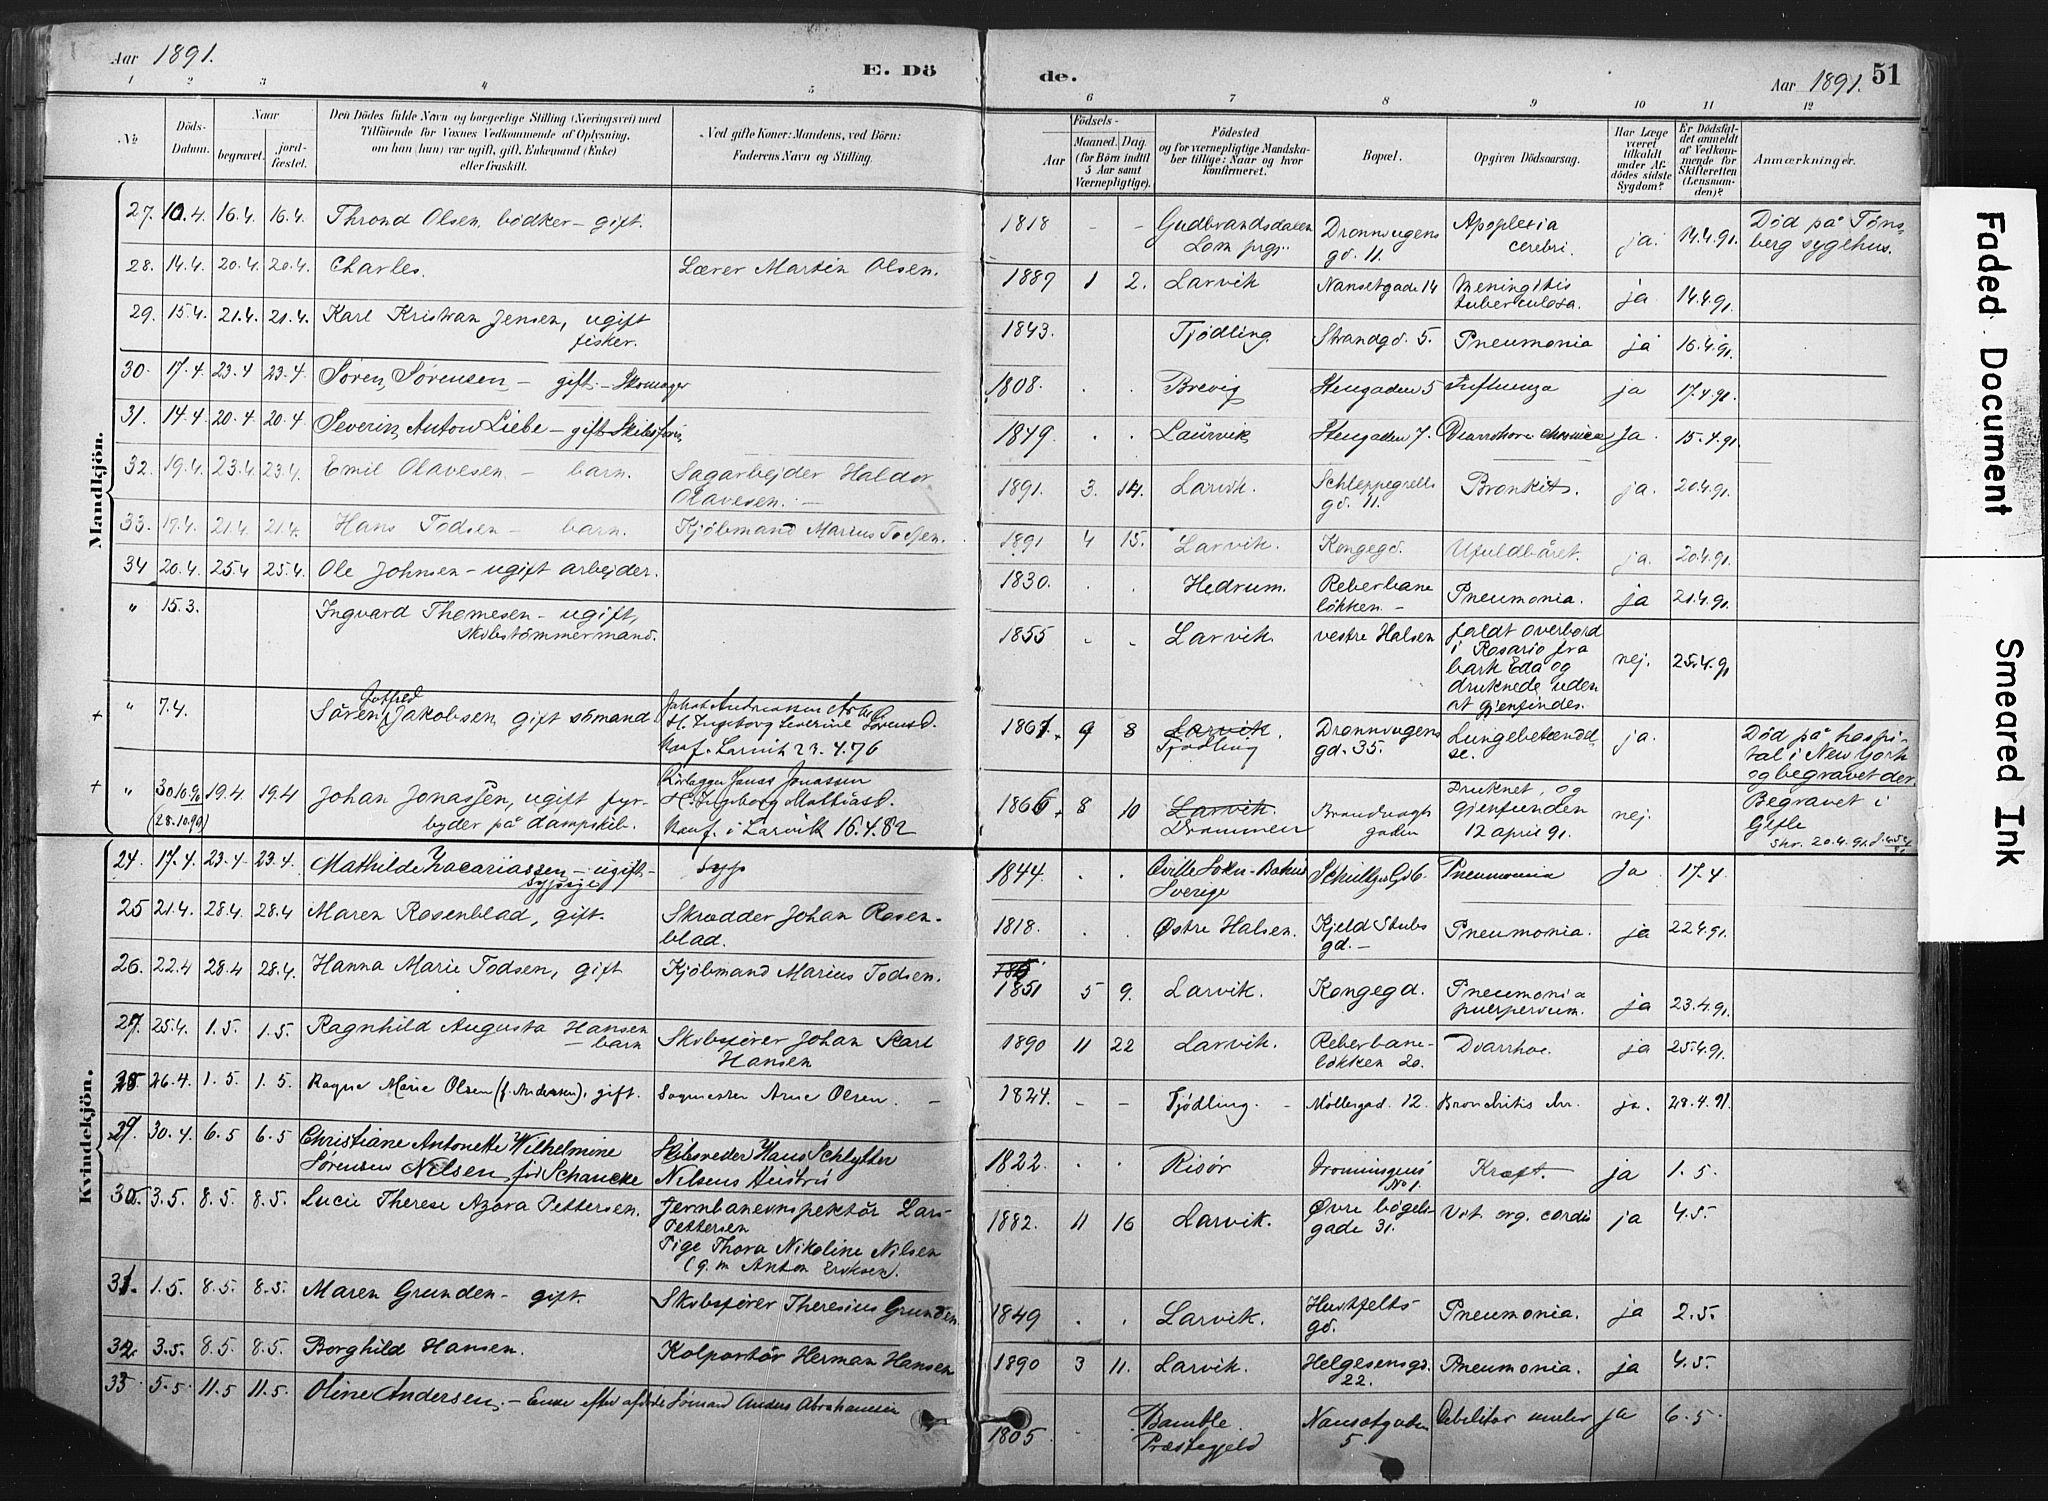 Aar 1891.
E. Dö
de.
Aar 1891.
51
1 2 3 4 5 6 7 8 9 10 11 12
No
Döds-Datum.
Naar
begravet.
jord-fæstet.
Den Dödes fulde Navn og borgerlige Stilling (Næringsvei) med
Tilföiende for Voxnes Vedkommende af Oplysning,
om han (hun) var ugift, gift, Enkemand (Enke)
eller fraskilt.
Ved gifte Koner: Mandens, ved Börn:
Faderens Navn og Stilling.
Aar
Födsels-
Maaned. Dag.
(for Börn indtil
5 Aar samt
Værnepligtige).
Födested
og for værnepligtige Mandska-
ber tillige: Naar og hvor
konfirmeret.
Bopæl.
Opgiven Dödsaarsag.
Har Læge
været
tilkaldt
under Af-
dödes sidste
Sygdom?
Er Dödsfal-
det anmeldt
af Vedkom-
mende for
Skifteretten
(Lensman-
den)?
Anmærkninger.
Mandkjön.
27. 10.4. 16.4. 16.4. Thrond Olsen, bödker - gift. 1818 - - Gudbrandsdalen Dronningens Apoplexia ja. 14.4.91. Død på Tøns-
Lom prgj. gd. 11. cerebri. berg sygehus.
28. 14.4. 20.4. 20.4. Charles. Lærer Martin Olsen. 1887 1 2. Larvik Nansetgade 14 Meningitis ja 14.4.91.
tuberculosa.
29. 15.4. 21.4. 21.4. Karl Kristian Jensen, ugift 1843. Tjödling Strandgd. 5. Pneumonia ja 16.4.91.
fisker.
30. 17.4 23.4 23.4. Søren Sørensen - gift - Skomager 1808. . . Brevig Stengaden 5 Influenza ja 17.4.91.
31. 14.4 20.4 20.4 Severin Anton Liebe - gift 1849. . . Laurvik Stengaden 7. Diarrhoea chronica Ja. 15.4.91.
32. 19.4. 23.4. 23.4. Emil Olavesen - barn. Sagarbejder Haldor 1891. 3. 14. Larvik. Schleppegrells Bronkit. ja. 20.4.91.
Olavesen. - gd. 11.
33. 17.4. 21.4. 21.4. Hans Todsen - barn. Kjöbmand Marius Todsen. 1891 4 15. Larvik. Kongegd. Ufuldbåret. ja. 20.4.91.
34 20.4. 25.4 25.4. Ole Johnsen - ugift arbejder. 1830. . . Hedrum. Reberbane Pneumonia. ja 21.4.91.
løkken. -
" 15.3. Ingvard Thomesen - ugift, 1855 - - Larvik. vestre Halsen faldt overbord nej. 25.4.91
skibstömmermand. i Rosario fra
bark Eda og
druknede uden
at gjenfindes.
+ " 7.4. Sören Jakobsen, gift sömand. 1861. 9 8 Larvik. Dronningens Lungebetændel- ja. Död på hospi-
Tjödling gd. 35. se. tal i New York
Konf. Larvik 23.4.76 og begravet der.
+ " 30.10.90 19.4 19.4 Johan Jonassen, ugift fyr- Jonassen 1866 8 10 Larvik. Druknet, og nej. Begravet i
(28.10.90) byder på dampskib. Konf. i Larvik 16.4.82 Drammen gaden gjenfunden Gefle
12 april 91. skr. 20.4.91
Kvindekjön.
24. 17.4. 23.4 23.4. Mathilde Zacariassen - ugift - 1844. . . Sverige Pneumonia Ja. 17.4
sypige
25 21.4. 28.4. 28.4 Maren Rosenblad, gift. Skrædder Johan Rosen- 1818. . . Østre Halsen. Kjeld Stubs Pneumonia. ja 22.4.91.
blad. gd. -
26. 22.4 28.4 28.4. Hanna Marie Todsen, gift Kjöbmand Marius Todsen. 1851 5 9. Larvik. Kongegd. Pneumonia ja 23.4.91.
puerperium.
27. 25.4. 1.5. 1.5. Ragnhild Augusta Hansen Skibsfører Johan Karl 1890 11 22 Larvik. Reberbane- Diarrhoe. ja 25.4.91.
- barn Hansen løkken 20.
28. 26.4. 1.5. 1.5. Ragne Marie Olsen (f. Andersen), gift. Sagmester Arne Olsen. - 1824. - - Tjödling. - Møllergad. 12. Bronchitis chr. ja. 28.4.91.
29. 30.4. 6.5 6.5 Christiane Antonette Wilhelmine Skibsreder Hans Schlytter 1822. . . Risør Kræft. ja 1.5.
Sørensen Nilsen, født Schancke Nilsens Hustru No 1.
30. 3.5. 8.5. 8.5. Lucie Therese Azora Pettersen. Jernbaneinspektør Lars 1882. 11 16 Larvik. Øvre bøgeli- Vit. org. cordis ja 4.5.
Pettersen gade 31.
Pige Thora Nikoline Nilsen
(g. m. Anton Eriksen).
31. 1.5. 8.5. 8.5. Maren Grunden - gift. Skibsfører Theresius Grunden. 1849 . . Larvik. Huitfelts Pneumonia. ja 2.5.
gd.
32. 3.5. 8.5. 8.5. Borghild Hansen. Kolportör Herman Hansen 1890 3 11. Larvik. Helgesensgd. Pneumonia. ja 4.5.
22.
33. 5.5 11.5 11.5. Oline Andersen. - Enke efter afdøde Sømand Anders Abrahamsen 1805 - Bamble Nansetgaden Debilitas senilis ja 6.5.
Præstegjeld 5.
Faded Document
Smeared Ink